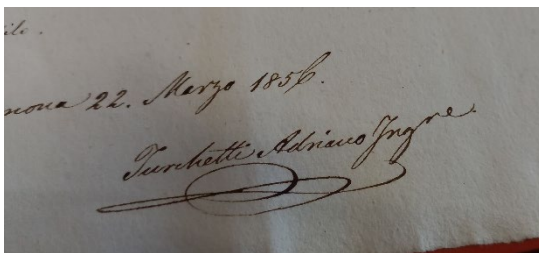 ili.
nova 22. Marzo 1856.
Turchetti Adriano Ingre